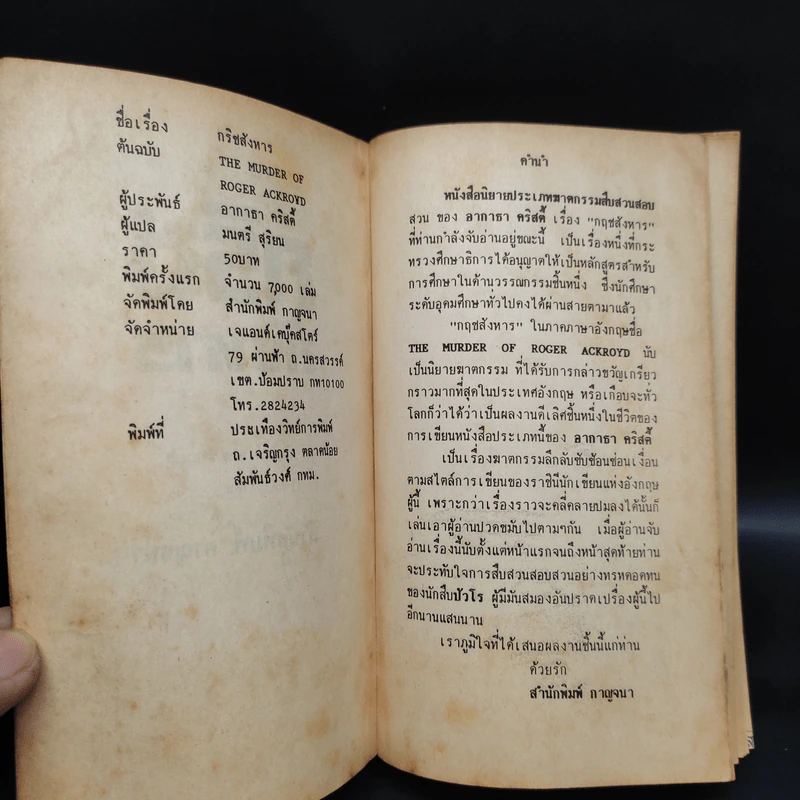 ชื่อเรื่อง กริชสังหาร
ต้นฉบับ THE MURDER OF
ROGER ACKROYD
ผู้ประพันธ์ อากาธา คริสตี้
ผู้แปล มนตรี สุริยน
ราคา 50บาท
พิมพ์ครั้งแรก จำนวน 7,000 เล่ม
จัดพิมพ์โดย สำนักพิมพ์ กาญจนา
จัดจำหน่าย เจแอนด์เคบุ๊คสโตร์
79 ผ่านฟ้า ถ.นครสวรรค์
เขต.ป้อมปราบ กท10100
โทร.2824234
พิมพ์ที่ ประเทืองวิทย์การพิมพ์
ถ.เจริญกรุง ตลาดน้อย
สัมพันธ์วงศ์ กทม.
คำนำ
หนังสือนิยายประเภทฆาตกรรมสืบสวนสอบ
สวน ของ อากาธา คริสตี้ เรื่อง "กฤชสังหาร"
ที่ท่านกำลังจับอ่านอยู่ขณะนี้ เป็นเรื่องหนึ่งที่กระ
ทรวงศึกษาธิการได้อนุญาตให้เป็นหลักสูตรสำหรับ
การศึกษาในด้านวรรณกรรมชิ้นหนึ่ง ซึ่งนักศึกษา
ระดับอุดมศึกษาทั่วไปคงได้ผ่านสายตามาแล้ว
"กฤชสังหาร" ในภาคภาษาอังกฤษชื่อ
THE MURDER OF ROGER ACKROYD นับ
เป็นนิยายฆาตกรรม ที่ได้รับการกล่าวขวัญเกรียว
กราวมากที่สุดในประเทศอังกฤษ หรือเกือบจะทั่ว
โลกก็ว่าได้ว่าเป็นผลงานดีเลิศชิ้นหนึ่งในชีวิตของ
การเขียนหนังสือประเภทนี้ของ อากาธา คริสตี้
เป็นเรื่องฆาตกรรมลึกลับซับซ้อนซ่อนเงื่อน
ตามสไตล์การเขียนของราชินีนักเขียนแห่งอังกฤษ
ผู้นี้ เพราะกว่าเรื่องราวจะคลี่คลายปมลงได้นั้นก็
เล่นเอาผู้อ่านปวดขมับไปตามๆกัน เมื่อผู้อ่านจับ
อ่านเรื่องนี้นับตั้งแต่หน้าแรกจนถึงหน้าสุดท้ายท่าน
จะประทับใจการสืบสวนสอบสวนอย่างทรหดอดทน
ของนักสืบปัวโร ผู้มีมันสมองอันปราดเปรื่องผู้นี้ไป
อีกนานแสนนาน
เราภูมิใจที่ได้เสนอผลงานชิ้นนี้แก่ท่าน
ด้วยรัก
สำนักพิมพ์ กาญจนา